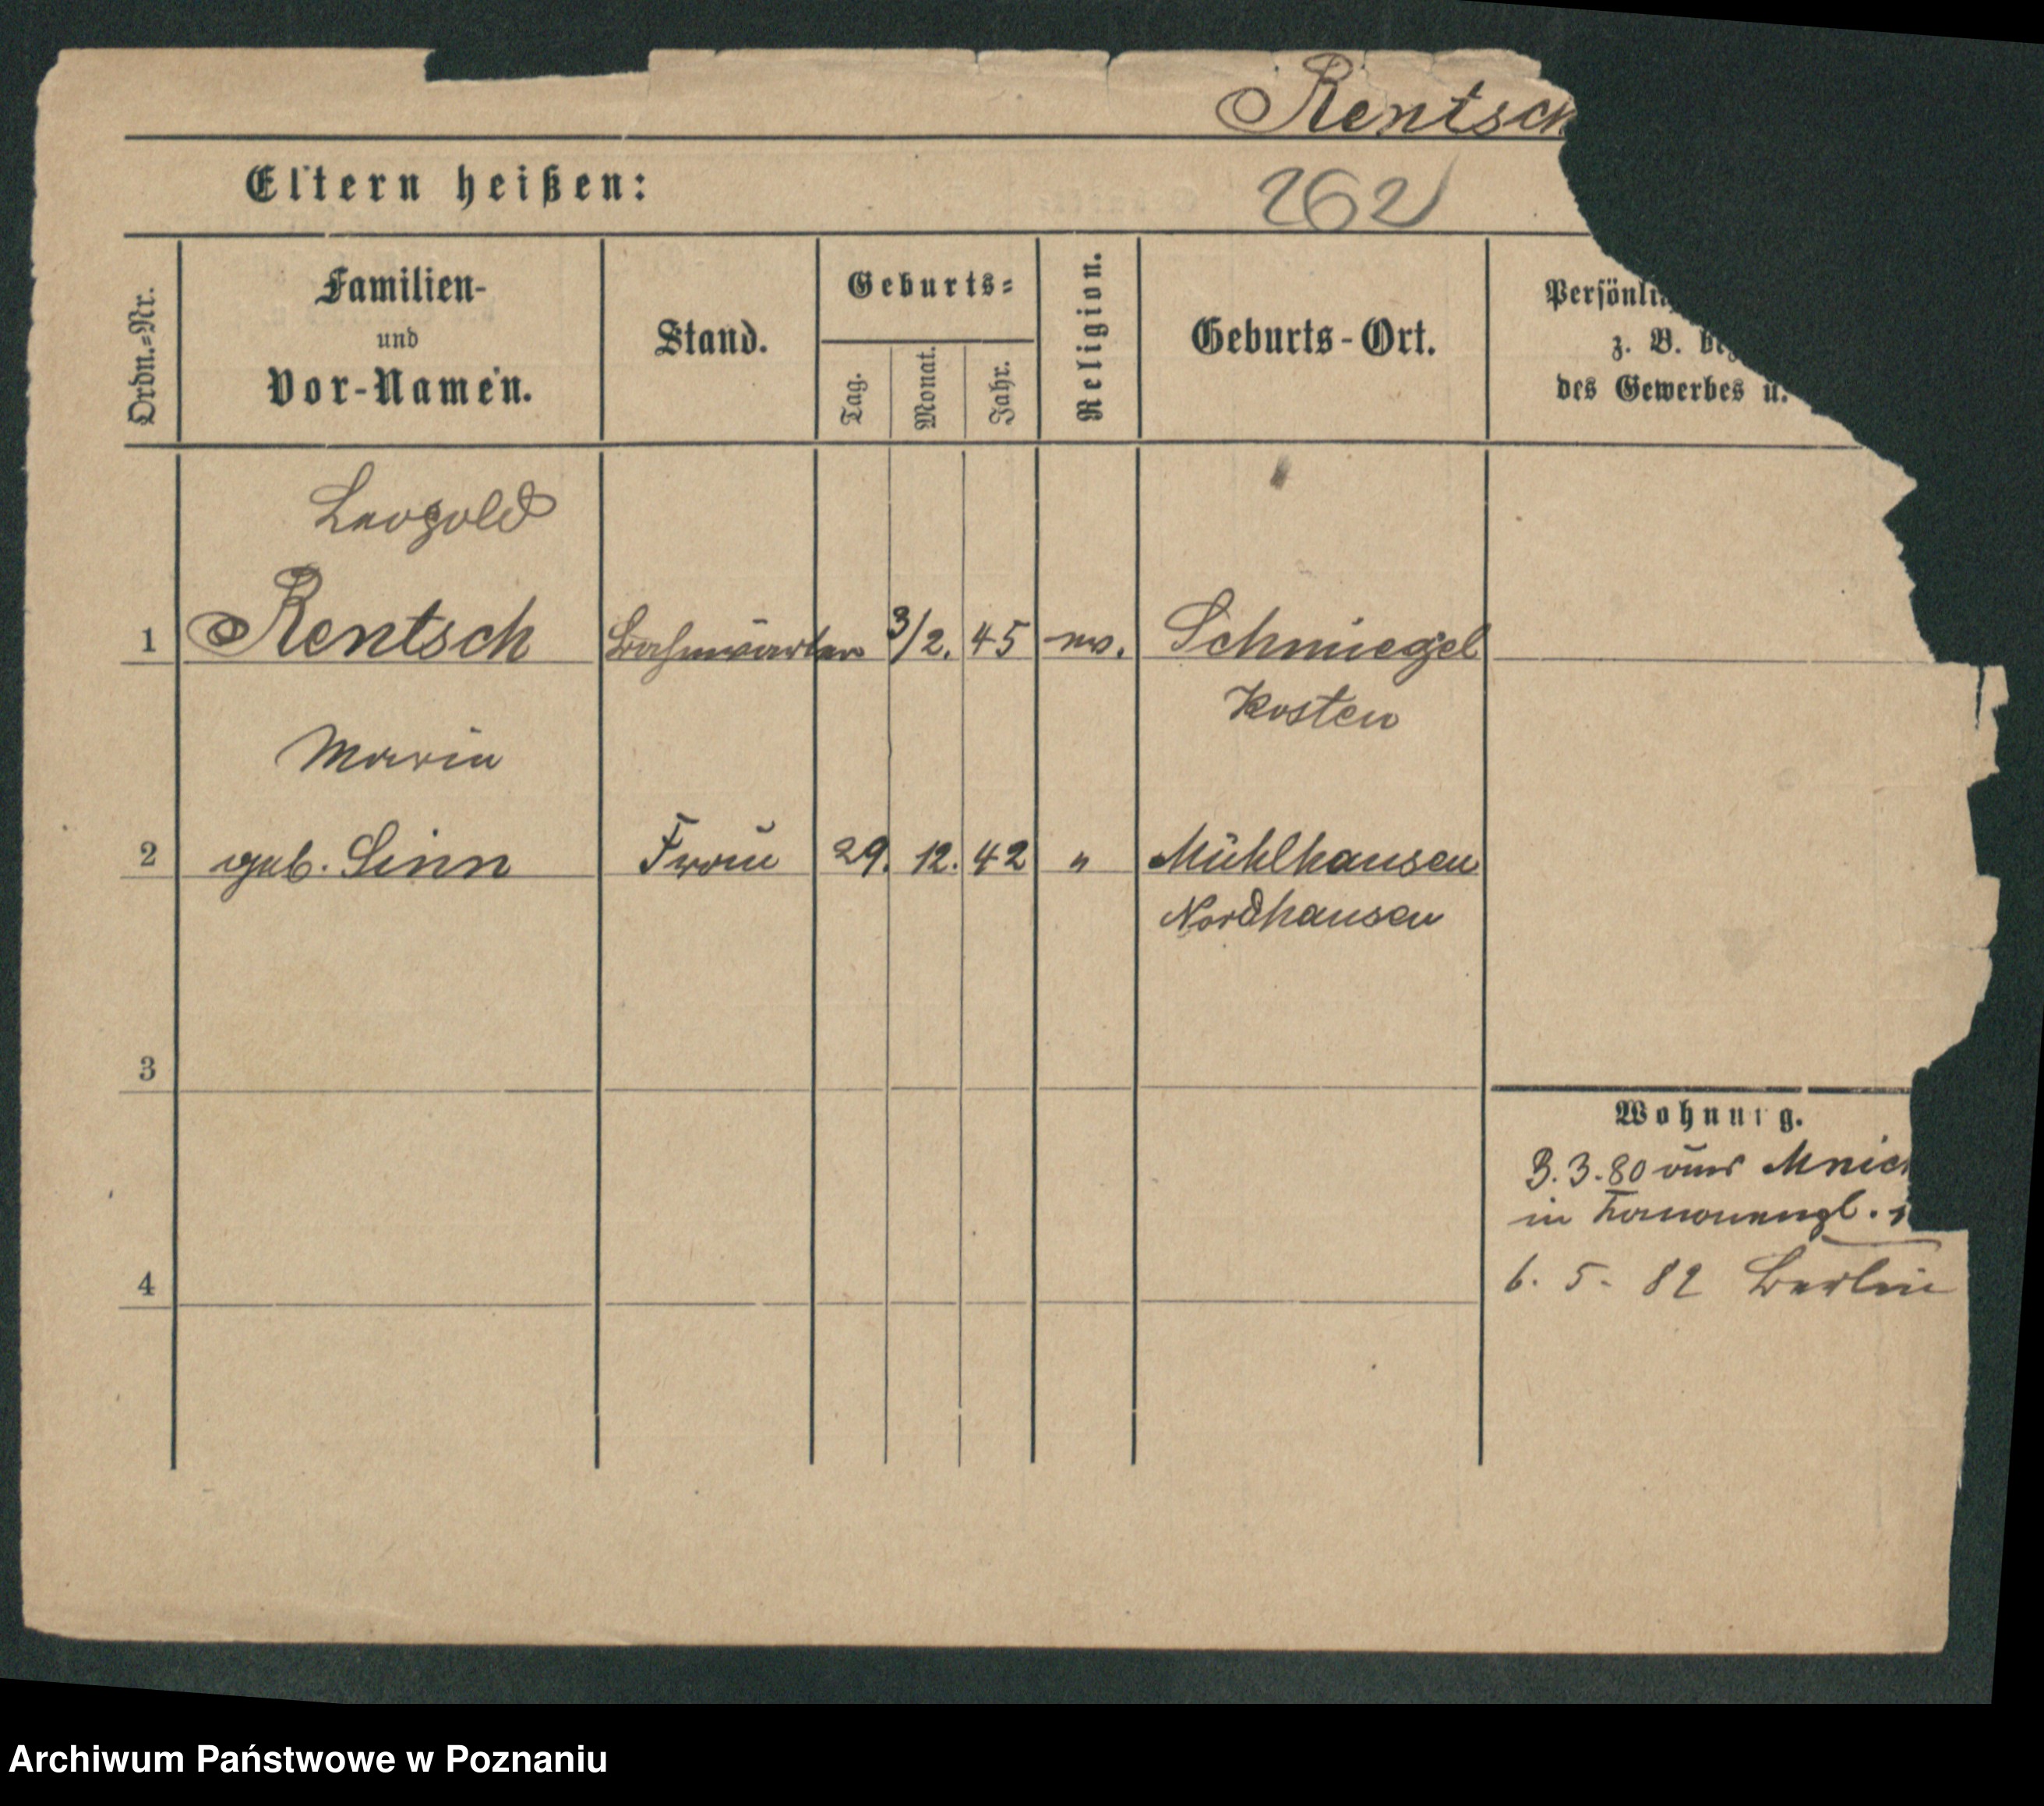 Rentsch
Eltern heißen:
262
Ordn.-Nr.
Familien-
und
Vor-Namen.
Stand.
Geburts-
Tag.
Monat.
Jahr.
Religion.
Geburts-Ort.
Persönli
z. B. bez
des Gewerbes u.
Leopold
1 Rentsch Bahnwärter 3/2. 45 ev. Schmiegel
Kosten
Marie
2 geb. Sinn Frau 29. 12. 42 " Mühlhausen
Nordhausen
3
Wohnung.
3.3.80 aus Mnich
in
4
6. 5. 82 Berlin
Archiwum Państwowe w Poznaniu